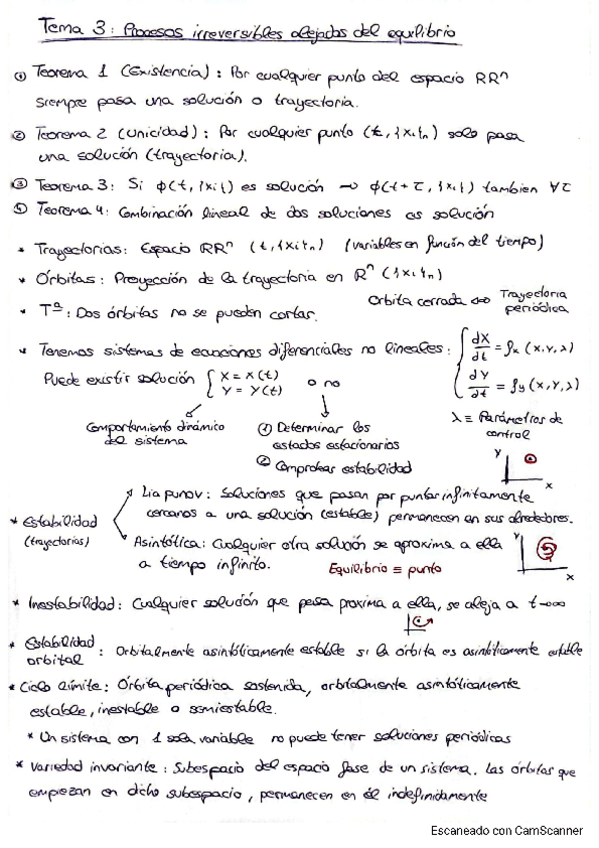 Tema 3: Procesos irreversibles alejados del equilibrio
① Teorema 1 (Existencia): Por cualquier punto del espacio RRⁿ
siempre pasa una solución o trayectoria.
② Teorema 2 (Unicidad): Por cualquier punto (t, {xᵢ}ₙ) solo pasa
una solución (trayectoria).
③ Teorema 3: Si ϕ(t, {xᵢ}) es solución → ϕ(t+τ, {xᵢ}) tambien ∀τ
Teorema 4: Combinación lineal de dos soluciones es solución
* Trayectorias: Espacio RRⁿ (t, {xᵢ}ₙ) (variables en función del tiempo)
* Órbitas: Proyección de la trayectoria en Rⁿ ({xᵢ}ₙ)
Orbita cerrada ⇔ Trayectoria periódica
* Tª: Dos órbitas no se pueden cortar.
* Tenemos sistemas de ecuaciones diferenciales no lineales: { dX/dt = fx (x, y, λ)
dY/dt = fy (x, y, λ)
Puede existir solución { X = X(t)
Y = Y(t) o no
λ ≡ Parámetros de control
Comportamiento dinámico
del sistema
① Determinar los
estados estacionarios
② Comprobar estabilidad
y
x
* Estabilidad
(trayectorias)
Liapunov: Soluciones que pasan por puntos infinitamente
cercanos a una solución (estable) permanecen en sus alrededores.
Asintótica: Cualquier otra solución se aproxima a ella
a tiempo infinito.
Equilibrio ≡ punto
y
x
* Inestabilidad: Cualquier solución que pasa proxima a ella, se aleja a t→∞
* Estabilidad
orbital : Orbitalmente asintóticamente estable si la órbita es asintóticamente estable
* Ciclo límite: Órbita periódica sostenida, orbitalmente asintóticamente
estable, inestable o semiestable.
* Un sistema con 1 sola variable no puede tener soluciones periódicas
* Variedad invariante: Subespacio del espacio fase de un sistema. Las órbitas que
empiezan en dicho subespacio, permanecen en él indefinidamente
Escaneado con CamScanner